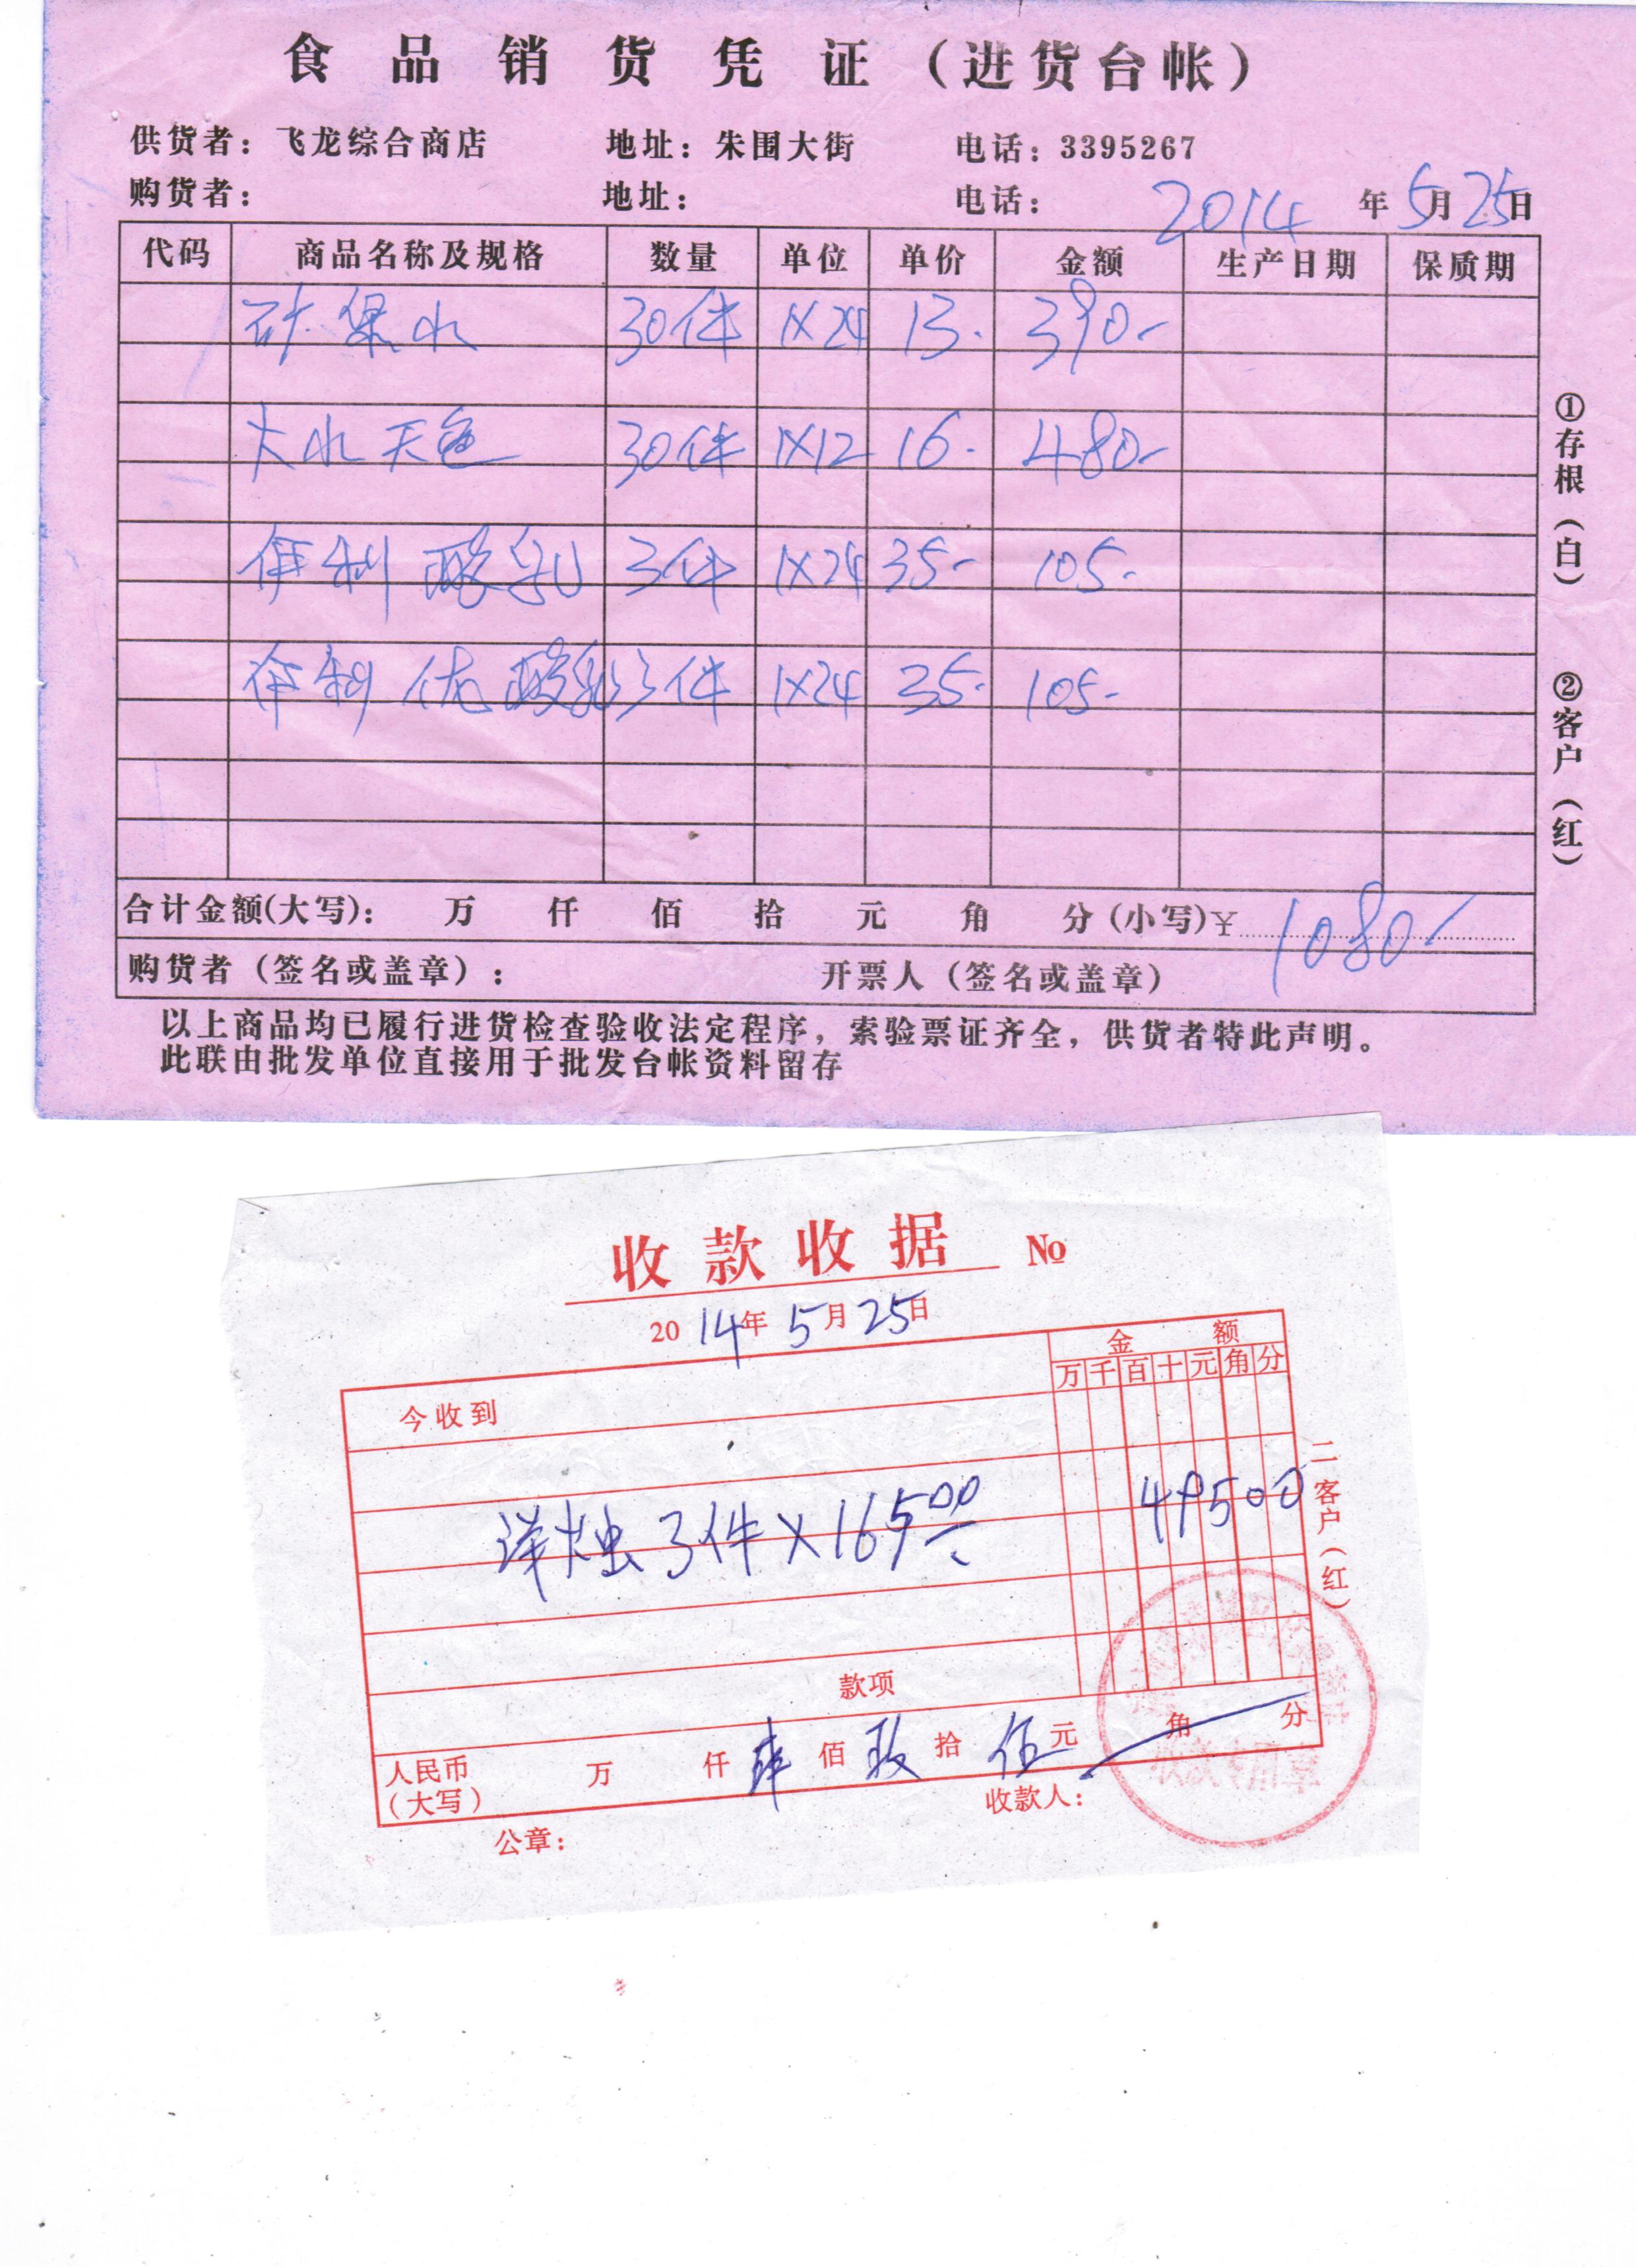 食品销货凭证（进货台帐）
供货者：飞龙综合商店 地址：朱围大街 电话：3395267
购货者： 地址： 电话： 2014年5月25日
代码 商品名称及规格 数量 单位 单价 金额 生产日期 保质期
水 30件 1×24 13. 390-
大水 30件 1×12 16. 480-
伊利 酸乳 3件 1×24 35- 105-
伊利 优酸乳 3件 1×24 35- 105-
合计金额(大写)： 万 仟 佰 拾 元 角 分 (小写)¥ 1080-
购货者（签名或盖章）： 开票人（签名或盖章）
以上商品均已履行进货检查验收法定程序，索验票证齐全，供货者特此声明。
此联由批发单位直接用于批发台帐资料留存
①存根（白） ②客户（红）
收款收据 No
2014年5月25日
金额
万 千 百 十 元 角 分
今收到
洋烛3件×165.00 49500
款项
人民币（大写） 万 仟 肆佰 玖拾 伍元 角 分
公章： 收款人：
二客户（红）
收款专用章